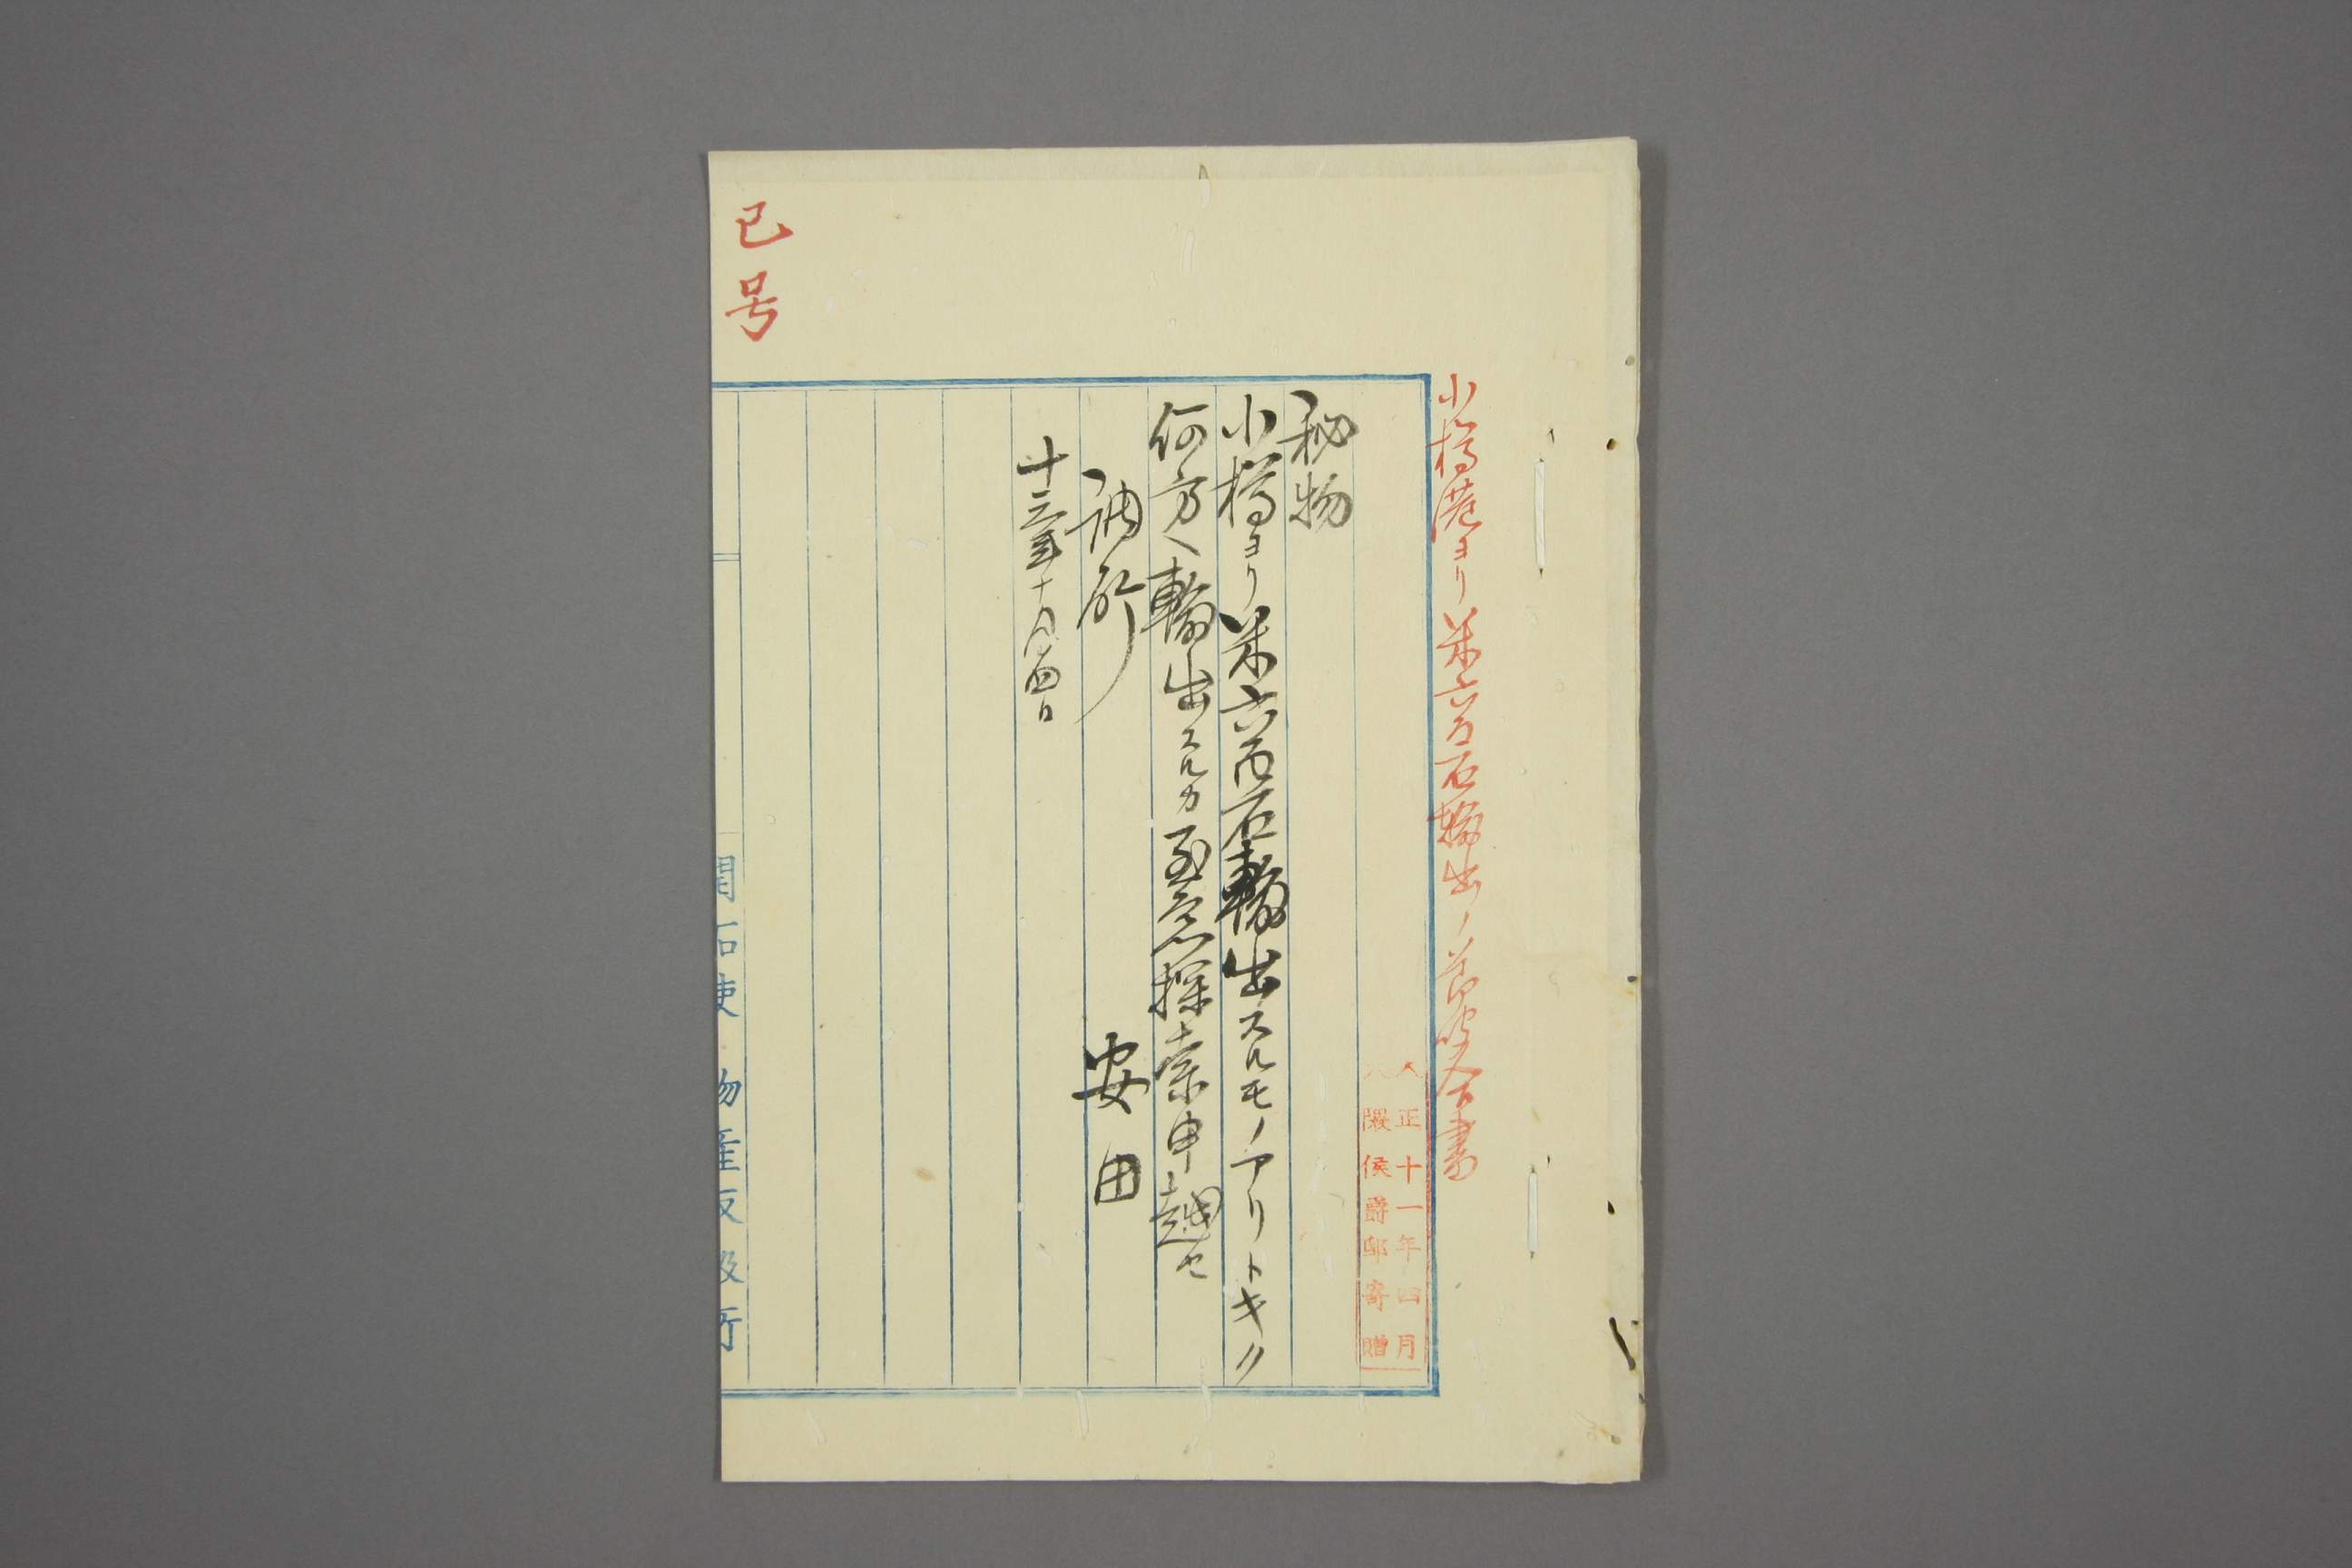 小樽港ヨリ米六百石輸出ノ節合書
大正十一年四月
大隈侯爵邸寄贈
秘物
小樽ヨリ米六百石輸出スルモノアリトキク
何方ヘ輸出スルカ至急探索申越セ
調所　安田
十三年十月四日
已号
開拓使物産取扱所